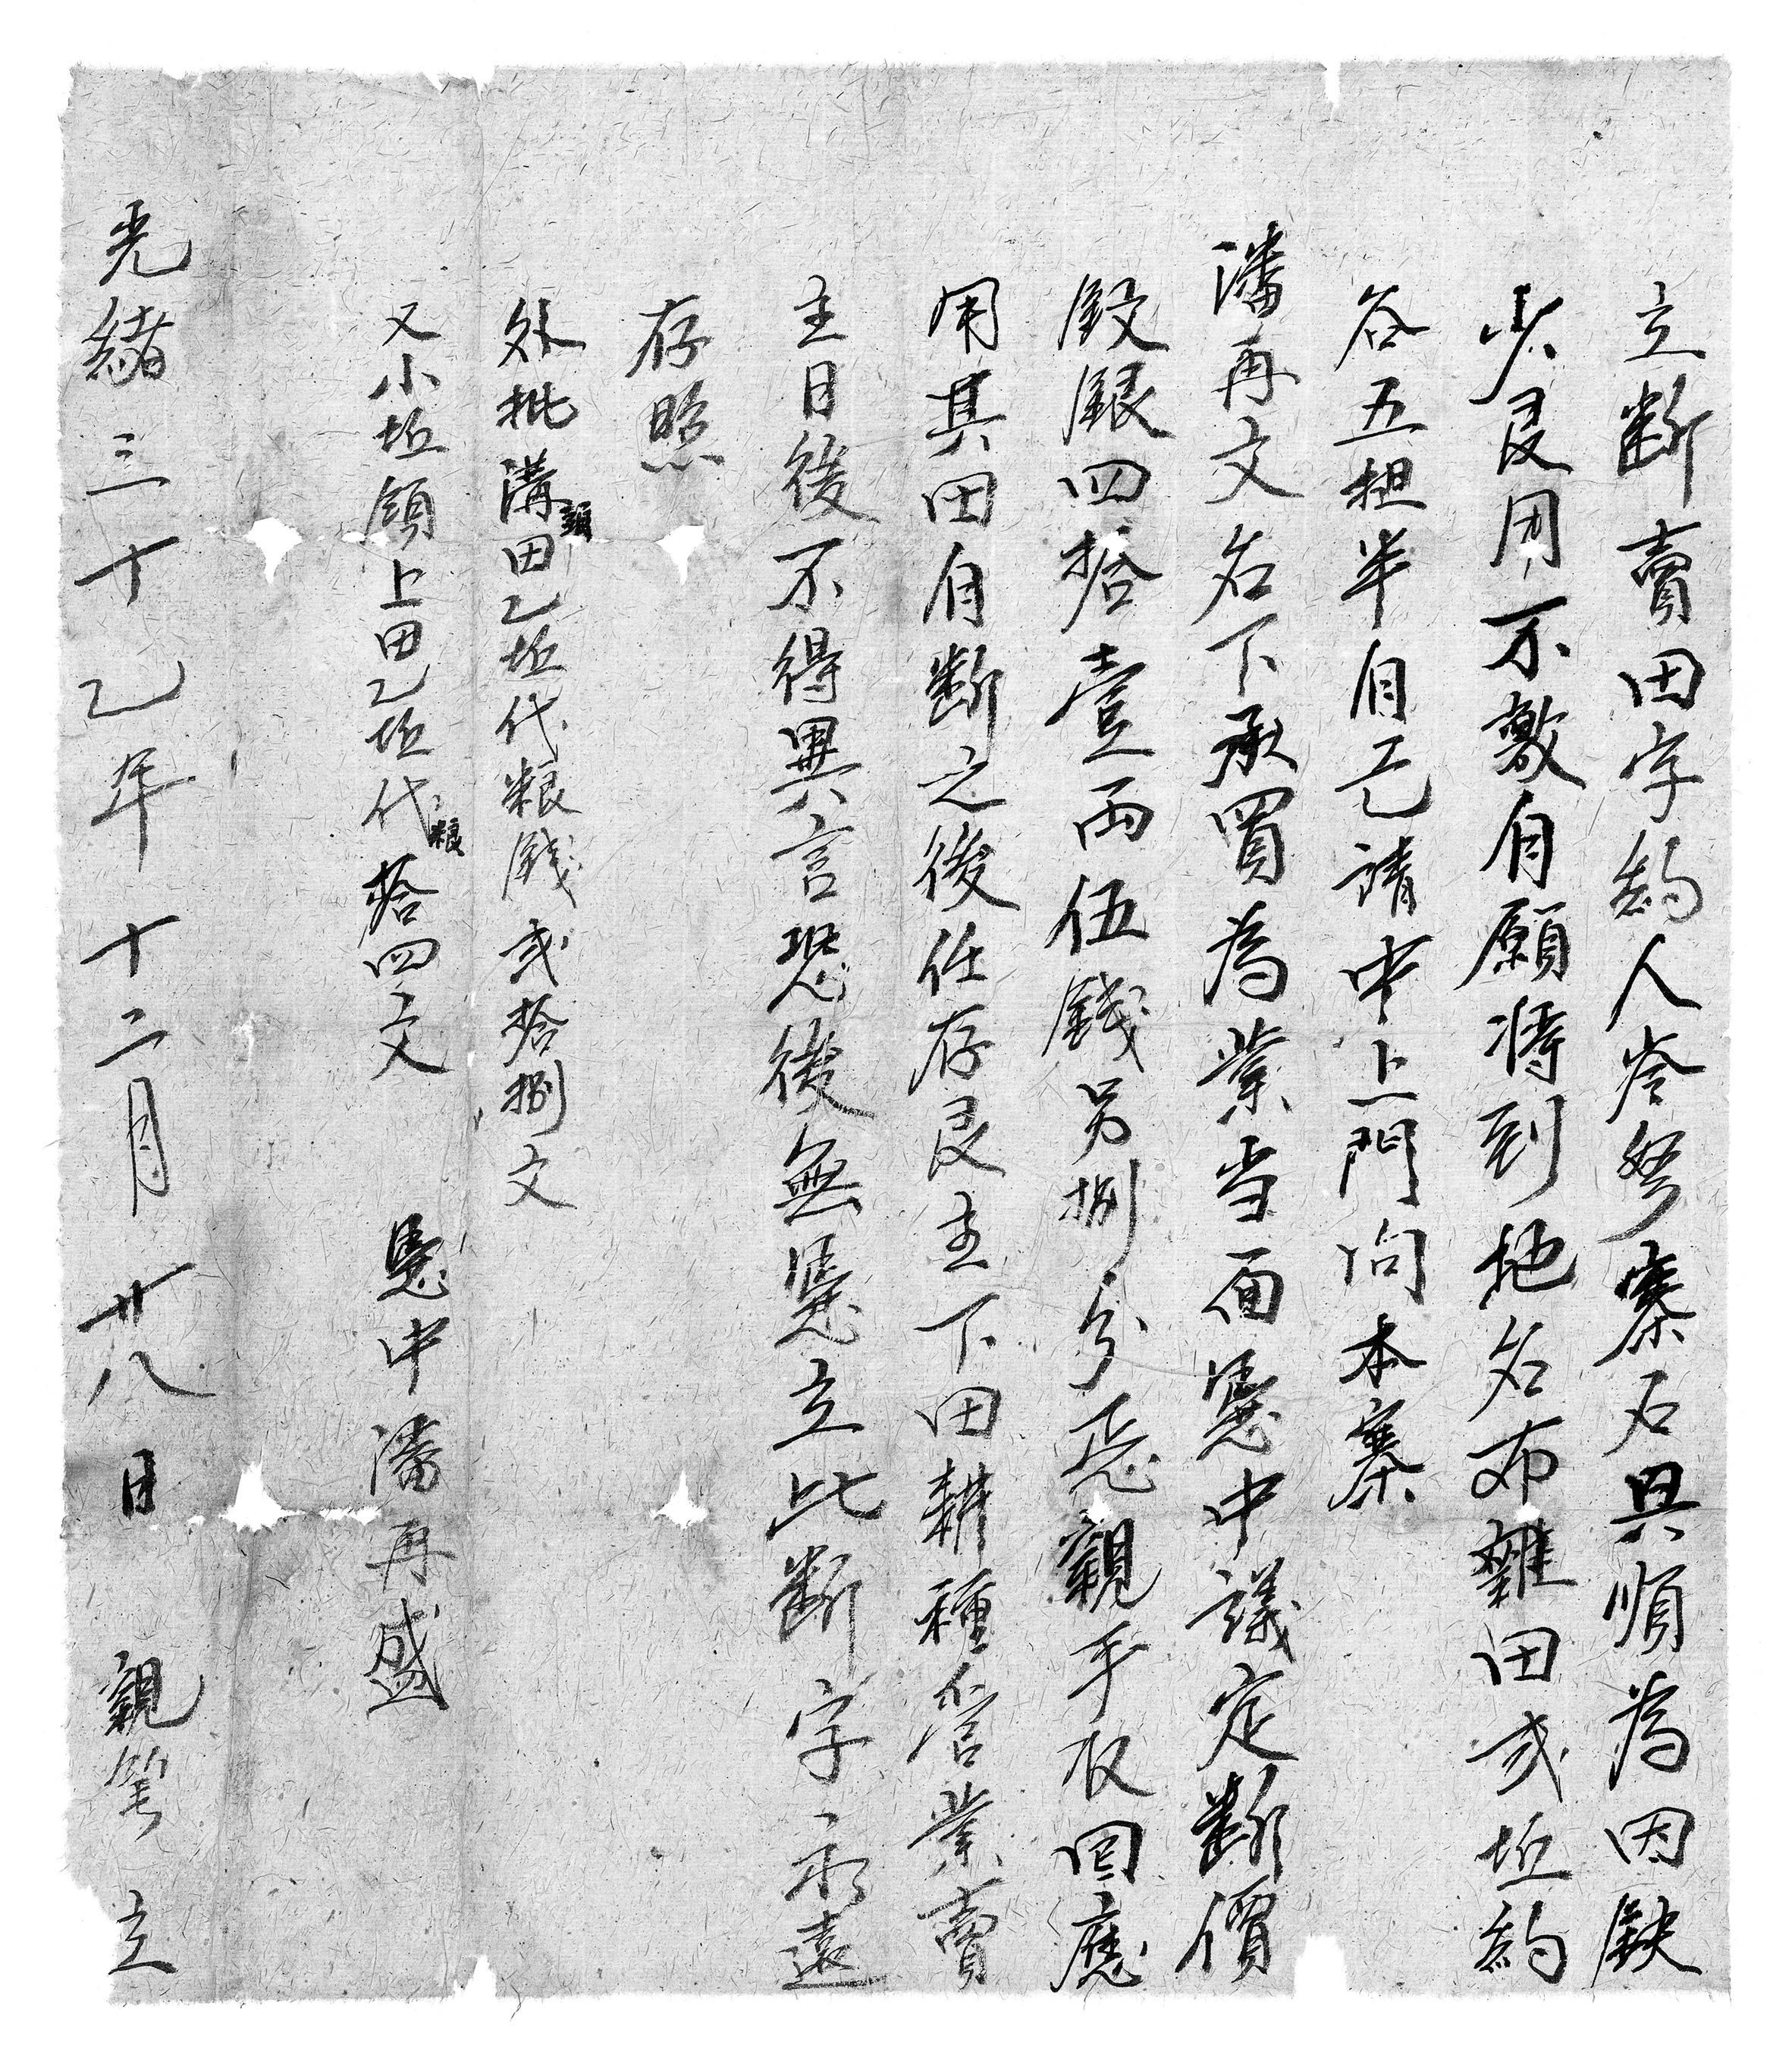 立断賣田字約人岑努寨石具順為因缺
少艮用不敷自愿將到地名布難田弍坵約
谷五担半自己請中上門问本寨
潘再文名下承買為業当面憑中議定断價
殷銀四拾壹両伍錢另捌分正親手收回應
用其田自断之後任存艮主下田耕種管業賣
主日後不得異言恐後無憑立此断字永遠
存照
外批溝頭田乙坵代粮錢弍拾捌文
又小坵領上田乙坵代粮拾四文 憑中 潘再盛
光緒三十乙年十二月廿八日 親筆 立